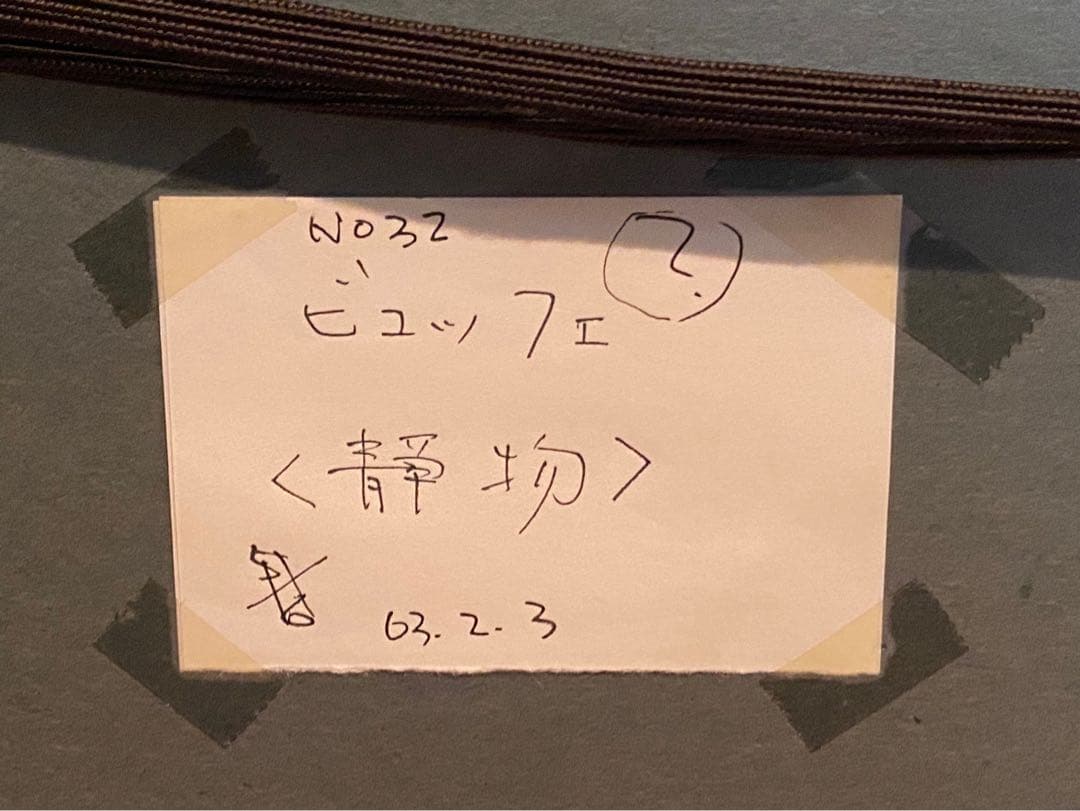 NO32
?
ビュッフェ
<静物>
63.2.3